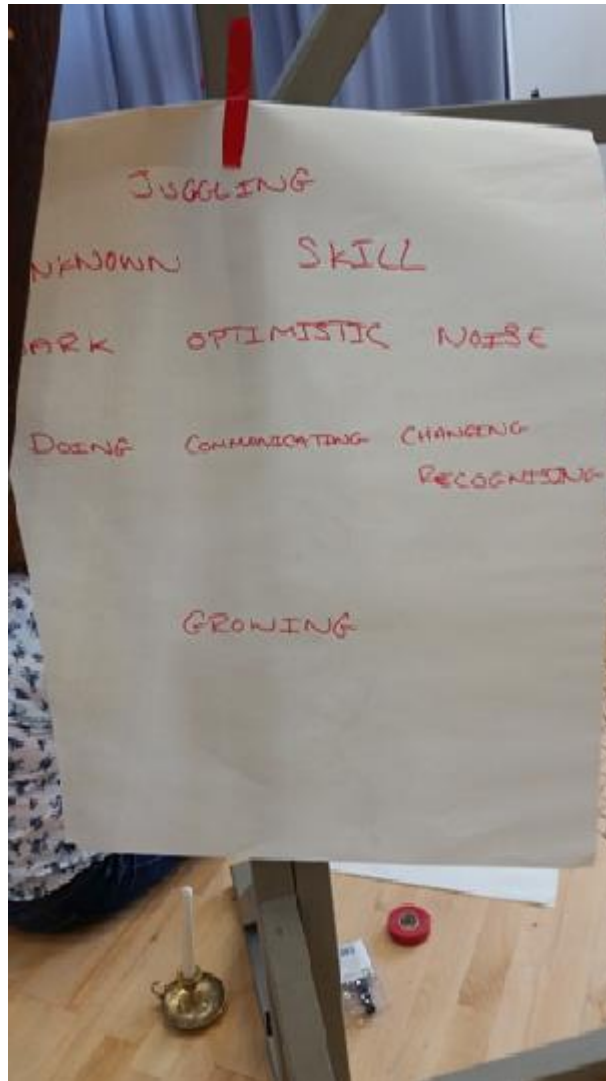 JUGGLING
NKNOWN SKILL
ARK OPTIMISTIC NOISE
DOING COMMUNICATING CHANGING
RECOGNISING
GROWING